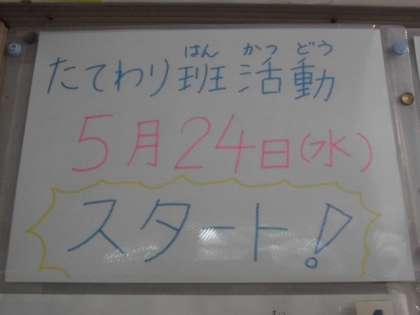 はん かつ どう
たてわり班活動
5月24日(水)
スタート!